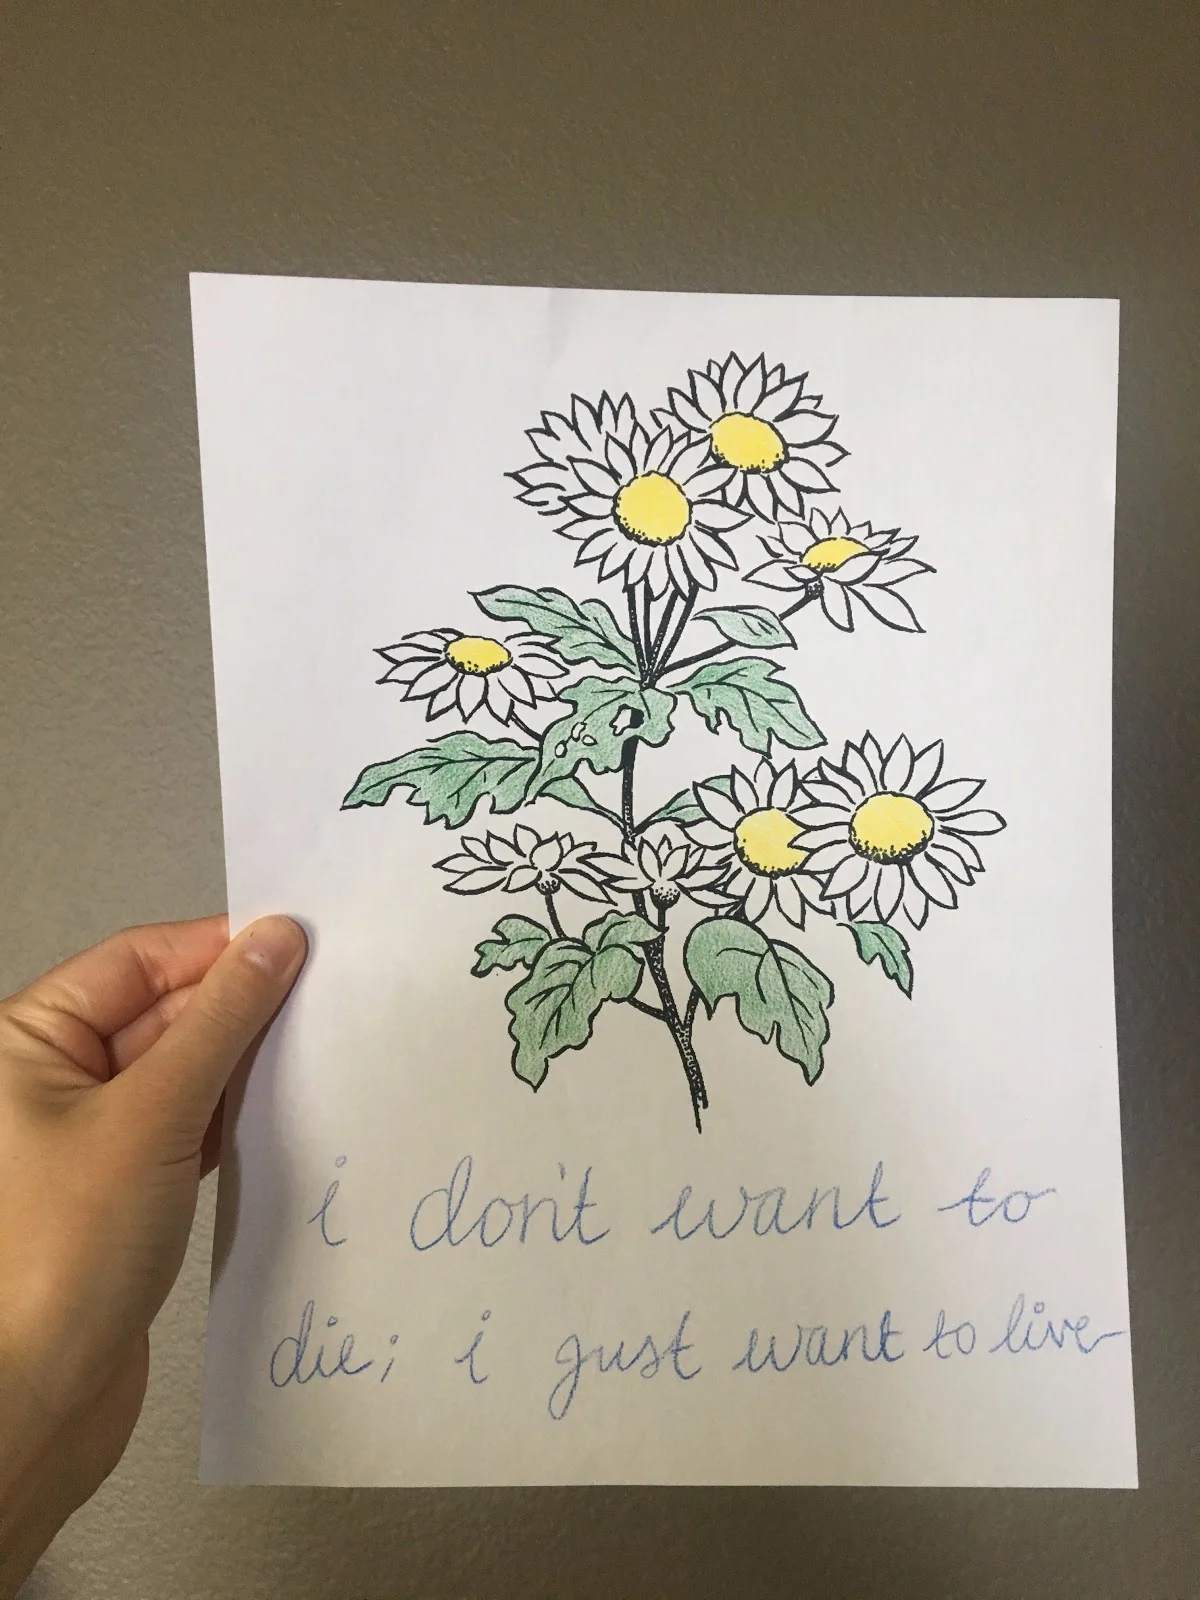 i don't want to
die; i just want to live